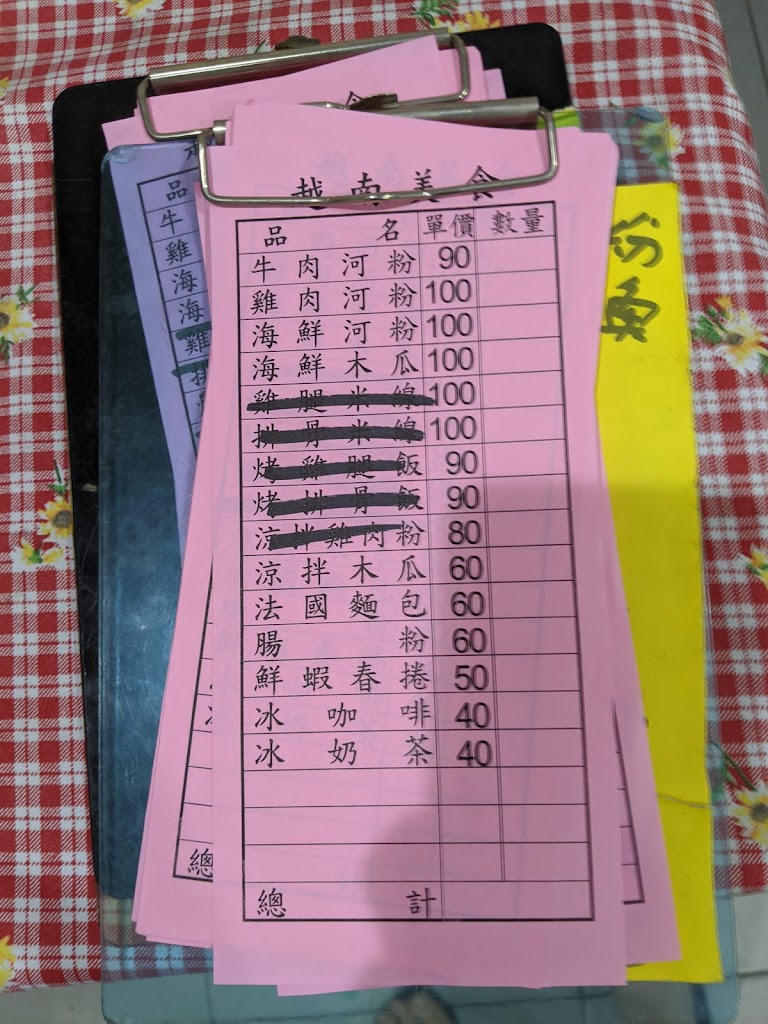 越南美食
品名 單價 數量
牛肉河粉 90
雞肉河粉 100
海鮮河粉 100
海鮮木瓜 100
雞腿米線 100
排骨米線 100
烤雞腿飯 90
烤排骨飯 90
涼拌雞肉粉 80
涼拌木瓜 60
法國麵包 60
腸粉 60
鮮蝦春捲 50
冰咖啡 40
冰奶茶 40
總計
品
牛
雞
海
海
雞
排
總